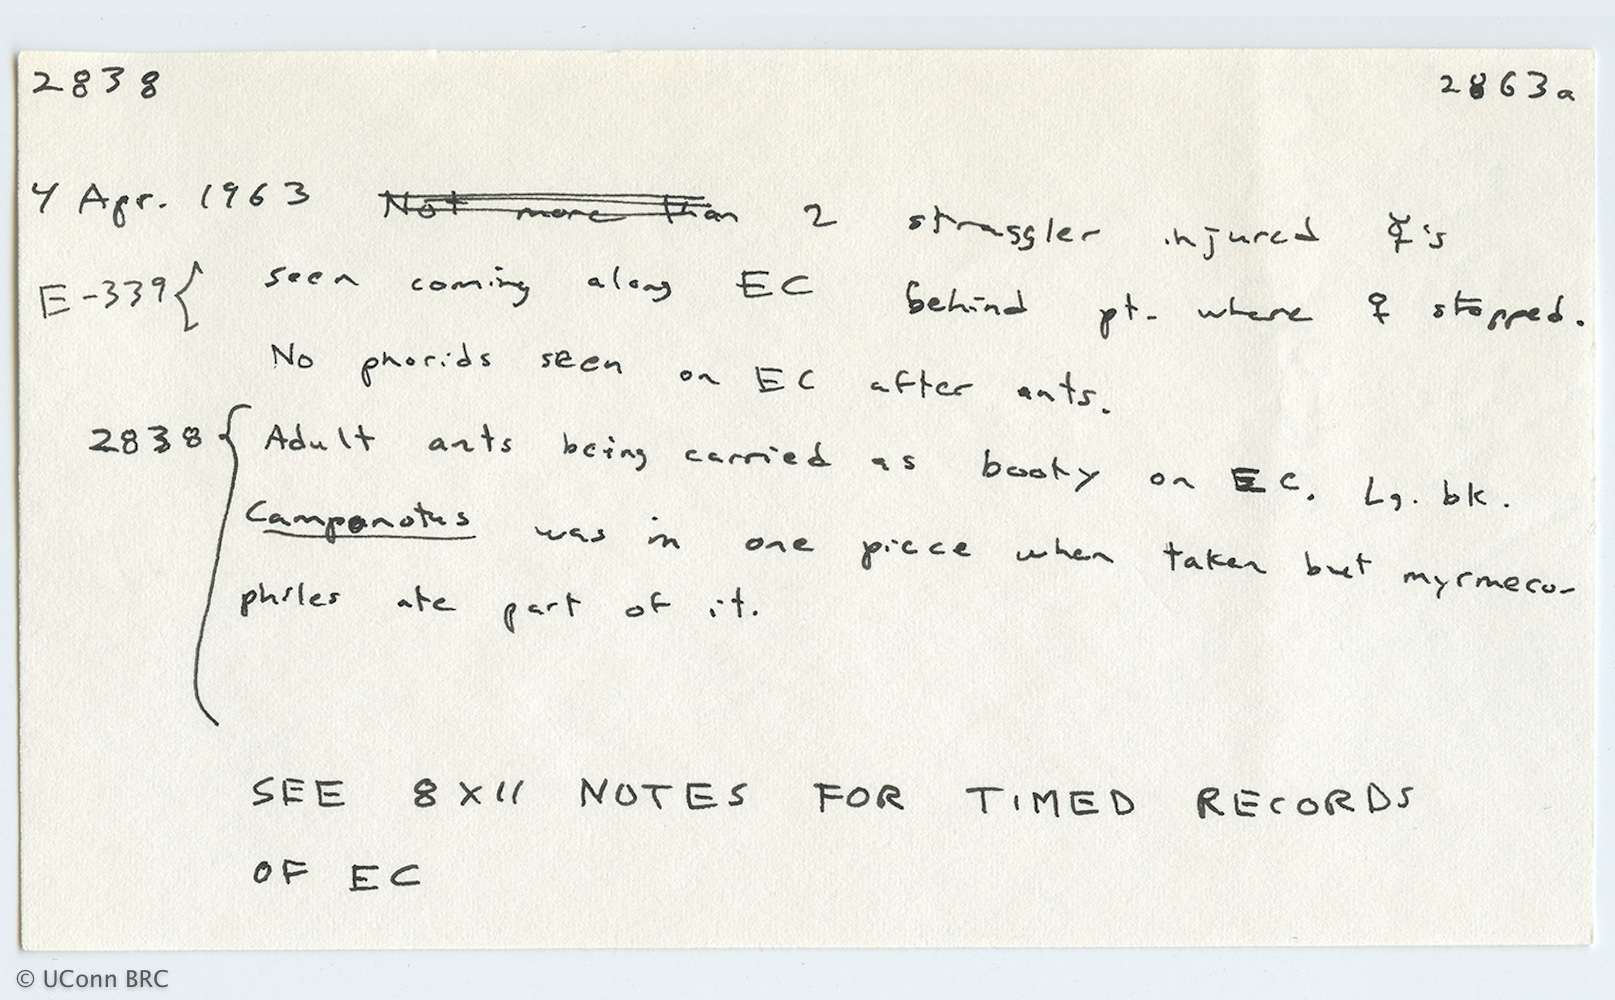 2838 2863a
4 Apr. 1963 Not more than 2 straggler injured ☿'s
E-339 { seen coming along EC behind pt. where ♀ stopped.
No phorids seen on EC after ants.
2838 { Adult ants being carried as booty on EC. Lg. bk.
Camponotus was in one piece when taken but myrmeco-
philes ate part of it.
SEE 8 X 11 NOTES FOR TIMED RECORDS
OF EC
© UConn BRC